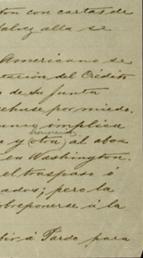 ton con cartas de
Galvez alla se
Americano se
tacion del Crédito
o de su Junta
rehuse por miedo,
implica
y (ton) al abon
en Washington
el traspaso ó
ados; pero la
obreponerse á la
bir á Pardo para